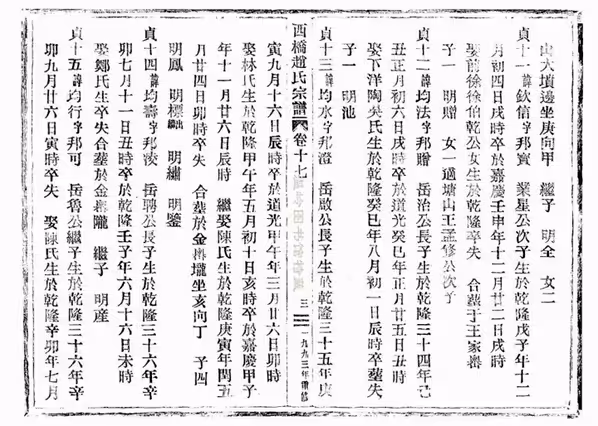 山大墳邊坐庚向甲　繼子　明全　女二
貞十一諱欽信字邦寅　業星公次子生於乾隆戊子年十二
月初四日戌時卒於嘉慶壬申年十二月廿二日戌時
娶前徐徐伯乾公女生於乾隆卒失　合塟于王家
子一　明贈　女一適塘山王孟修公次子
貞十二諱均法字邦贈　岳治公長子生於乾隆三十四年己
丑正月初六日戌時卒於道光癸巳年正月廿五日丑時
娶下洋陶吳氏生於乾隆癸巳年八月初一日辰時卒塟失
子一　明池
貞十三諱均水字邦澄　岳啟公長子生於乾隆三十五年庚
西橋趙氏宗譜　卷十七　三　一九九三年重修
寅九月十六日辰時卒於道光甲午年三月廿六日卯時
娶林氏生於乾隆甲午年五月初十日亥時卒於嘉慶甲子
年十一月廿六日辰時　繼娶陳氏生於乾隆庚寅年閏五
月廿四日卯時卒失　合塟於金壠坐亥向丁　子四
明鳳　明標　明繡　明鑒
貞十四諱均壽字邦凌　岳聘公長子生於乾隆三十六年辛
卯七月十一日丑時卒於乾隆壬子年六月十六日未時
娶鄭氏生卒失合塟於金隴　繼子　明產
貞十五諱均行字邦可　岳魯公繼子生於乾隆三十六年辛
卯九月廿六日寅時卒失　娶陳氏生於乾隆辛卯年七月